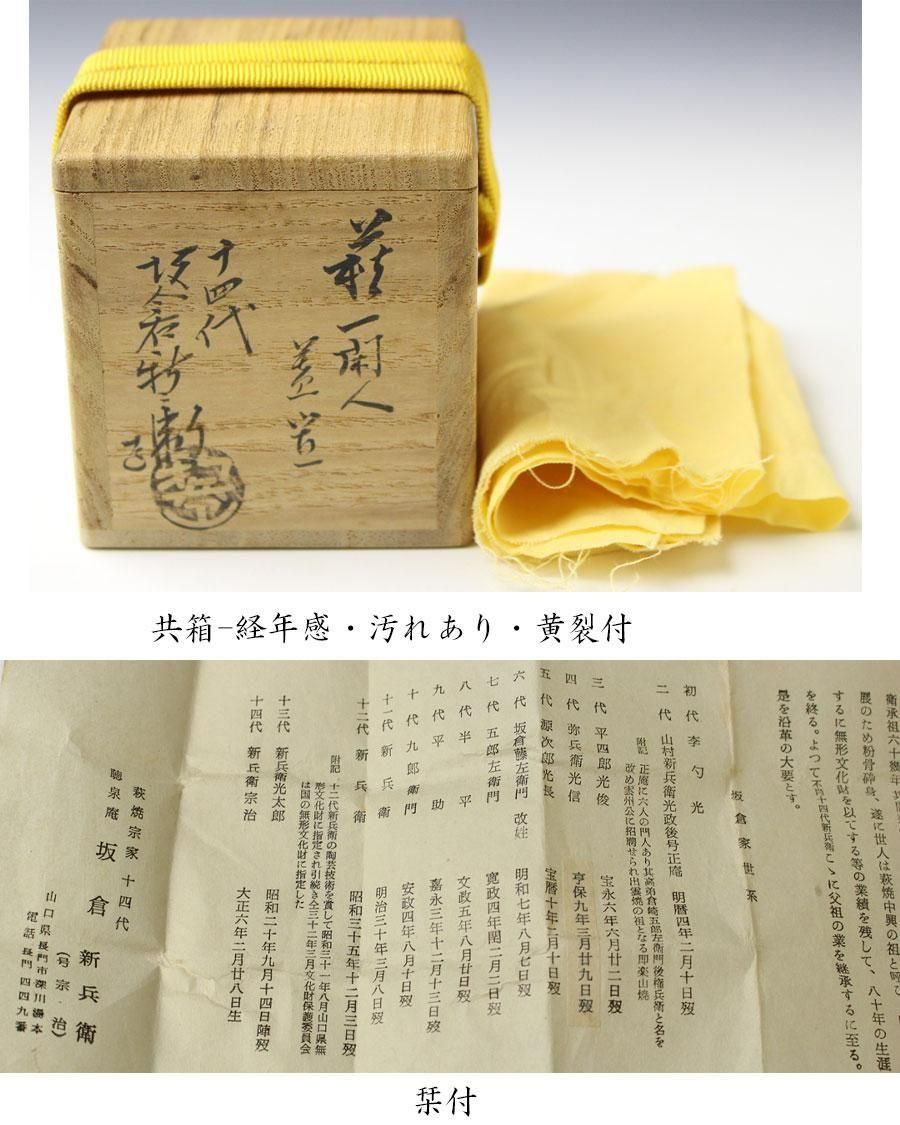 萩一閑人
蓋置
十四代
坂倉新兵衛
造
共箱-経年感・汚れあり・黄裂付
衛承祖六十幾年
展のため粉骨砕身、遂に世人は萩焼中興の祖と呼び
するに無形文化財を以てする等の業績を残して、八十年の生涯
を終る。よつて不肖十四代新兵衛こゝに父祖の業を継承するに至る。
是を沿革の大要とす。
坂倉家世系
初代 李勺光
二代 山村新兵衛光政後号正庵 明暦四年二月十日歿
附記 正庵に六人の門人あり其高弟倉崎五郎左衛門後権兵衛と名を
改め雲州公に招聘せられ出雲焼の祖となる即楽山焼
三代 平四郎光俊 宝永六年六月廿二日歿
四代 弥兵衛光信 享保九年三月廿九日歿
五代 源次郎光長 宝暦十年二月十日歿
六代 坂倉藤左衛門 改姓 明和七年八月七日歿
七代 五郎左衛門 寛政四年閏二月二日歿
八代 半平 文政五年八月廿日歿
九代 平助 嘉永三年十二月十三日歿
十代 九郎右衛門 安政四年八月十日歿
十一代 新兵衛 明治三十年三月八日歿
十二代 新兵衛 昭和三十五年十二月三日歿
附記 十二代新兵衛の陶芸技術を賞して昭和三十一年八月山口県無
形文化財に指定され引続き仝三十二年三月文化財保護委員会
は国の無形文化財に指定した
十三代 新兵衛光太郎 昭和二十年九月十四日陣歿
十四代 新兵衛宗治 大正六年二月廿八日生
萩焼宗家 十四代
聴泉庵 坂倉新兵衛
(号宗治)
山口県長門市深川湯本
電話長門四四九番
栞付